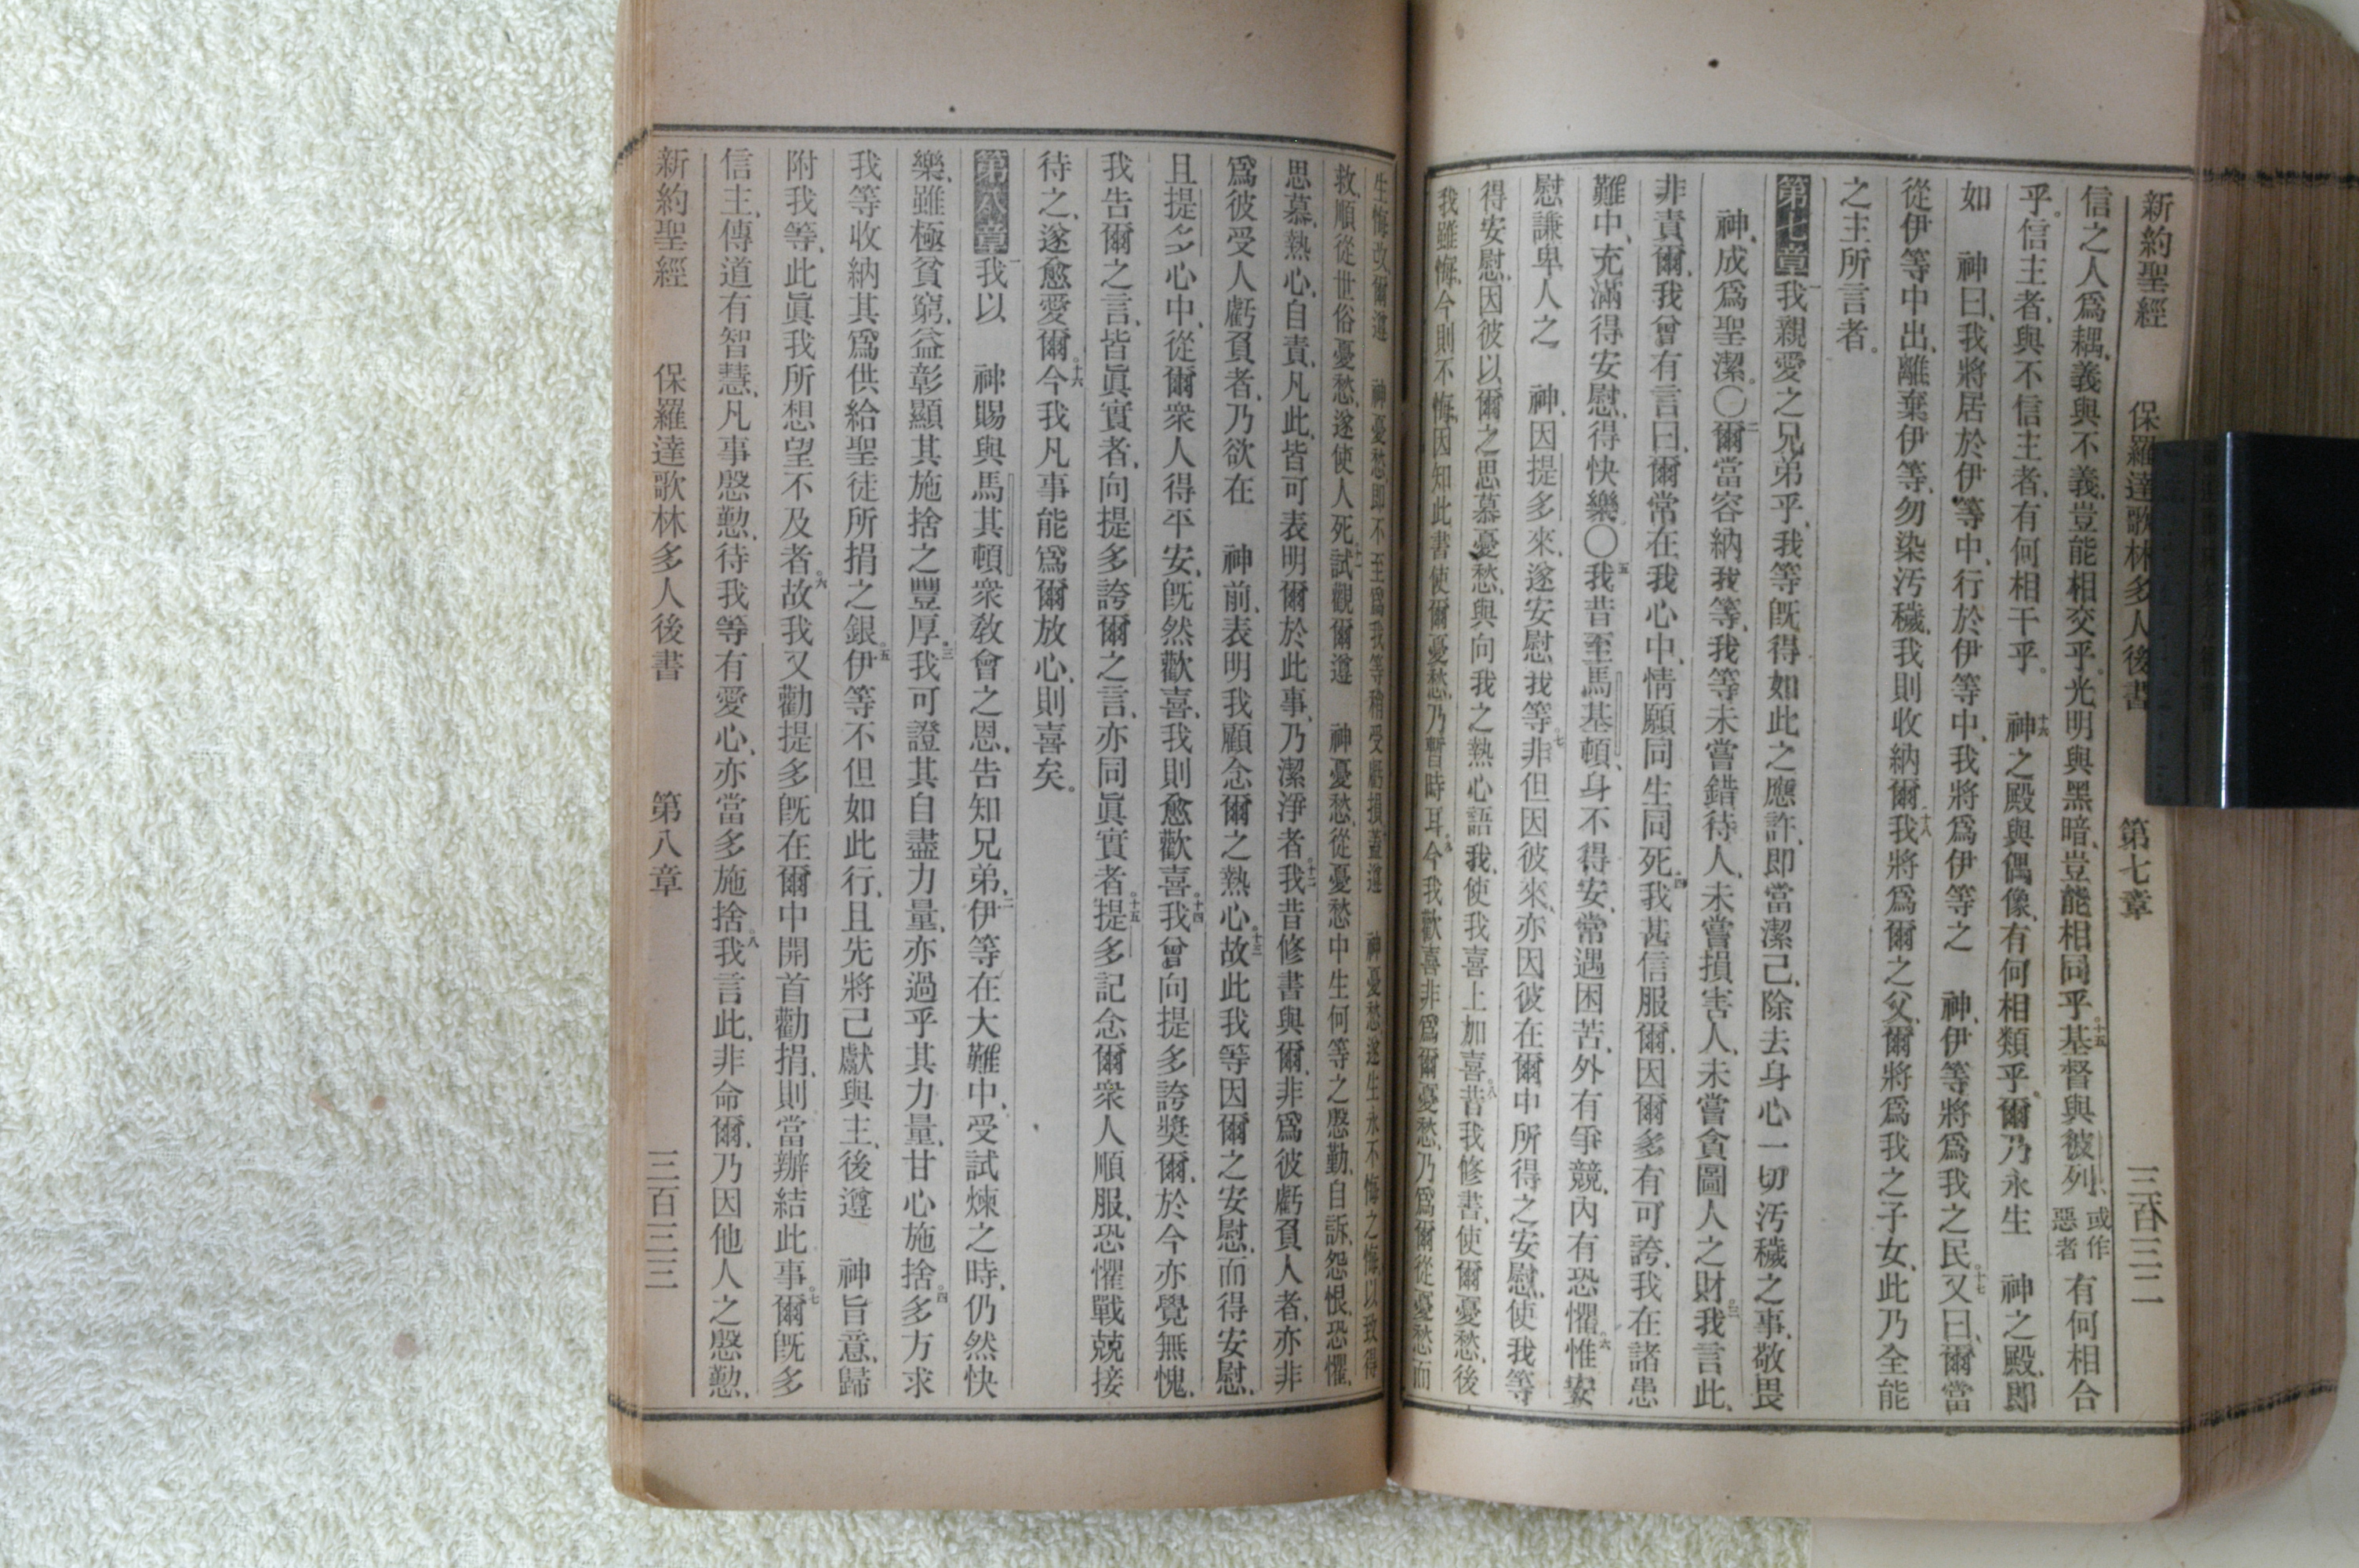 新約聖經 保羅達歌林多人後書 第七章 三百三二
信之人爲耦、義與不義、豈能相交乎。光明與黑暗、豈能相同乎。十五基督與彼列、或作惡者有何相合
乎。信主者、與不信主者、有何相干乎。十六神之殿與偶像、有何相類乎。爾乃永生 神之殿、即
如 神曰、我將居於伊等中、行於伊等中、我將爲伊等之 神、伊等將爲我之民。十七又曰、爾當
從伊等中出、離棄伊等、勿染汚穢、我則收納爾、十八我將爲爾之父、爾將爲我之子女、此乃全能
之主所言者。
第七章一我親愛之兄弟乎、我等旣得如此之應許、即當潔己、除去身心一切汚穢之事、敬畏
神、成爲聖潔。〇二爾當容納我等、我等未嘗錯待人、未嘗損害人、未嘗貪圖人之財。三我言此、
非責爾、我曾有言曰、爾常在我心中、情願同生同死。四我甚信服爾、因爾多有可誇、我在諸患
難中、充滿得安慰、得快樂。〇五我昔至馬基頓、身不得安、常遇困苦、外有爭競、內有恐懼。六惟安
慰謙卑人之 神、因提多來、遂安慰我等。七非但因彼來、亦因彼在爾中所得之安慰、使我等
得安慰、因彼以爾之思慕憂愁、與向我之熱心語我、使我喜上加喜。八昔我修書、使爾憂愁、後
我雖悔、今則不悔、因知此書使爾憂愁、乃暫時耳。九今我歡喜、非爲爾憂愁、乃爲爾從憂愁而
生悔改、爾遵 神憂愁、即不至爲我等稍受虧損、蓋遵 神憂愁、遂生永不悔之悔、以致得
救、順從世俗憂愁、遂使人死。十一試觀爾遵 神憂愁、從憂愁中生何等之慇勤、自訴、怨恨、恐懼、
思慕、熱心、自責、凡此、皆可表明爾於此事、乃潔淨者。十二我昔修書與爾、非爲彼虧負人者、亦非
爲彼受人虧負者、乃欲在 神前、表明我顧念爾之熱心。十三故此我等因爾之安慰、而得安慰、
且提多心中、從爾衆人得平安、旣然歡喜、我則愈歡喜。十四我曾向提多誇獎爾、於今亦覺無愧、
我告爾之言、皆眞實者、向提多誇爾之言、亦同眞實者。十五提多記念爾衆人順服、恐懼戰兢接
待之、遂愈愛爾。十六今我凡事能爲爾放心、則喜矣。
第八章一我以 神賜與馬其頓衆敎會之恩、告知兄弟、二伊等在大難中、受試煉之時、仍然快
樂、雖極貧窮、益彰顯其施捨之豐厚。三我可證其自盡力量、亦過乎其力量、甘心施捨。四多方求
我等收納其爲供給聖徒所捐之銀。五伊等不但如此行、且先將己獻與主、後遵 神旨意、歸
附我等、此眞我所想望不及者。六故我又勸提多旣在爾中開首勸捐、則當辦結此事。七爾旣多
信主、傳道有智慧、凡事慇懃、待我等有愛心、亦當多施捨。八我言此、非命爾、乃因他人之慇懃、
新約聖經 保羅達歌林多人後書 第八章 三百三三